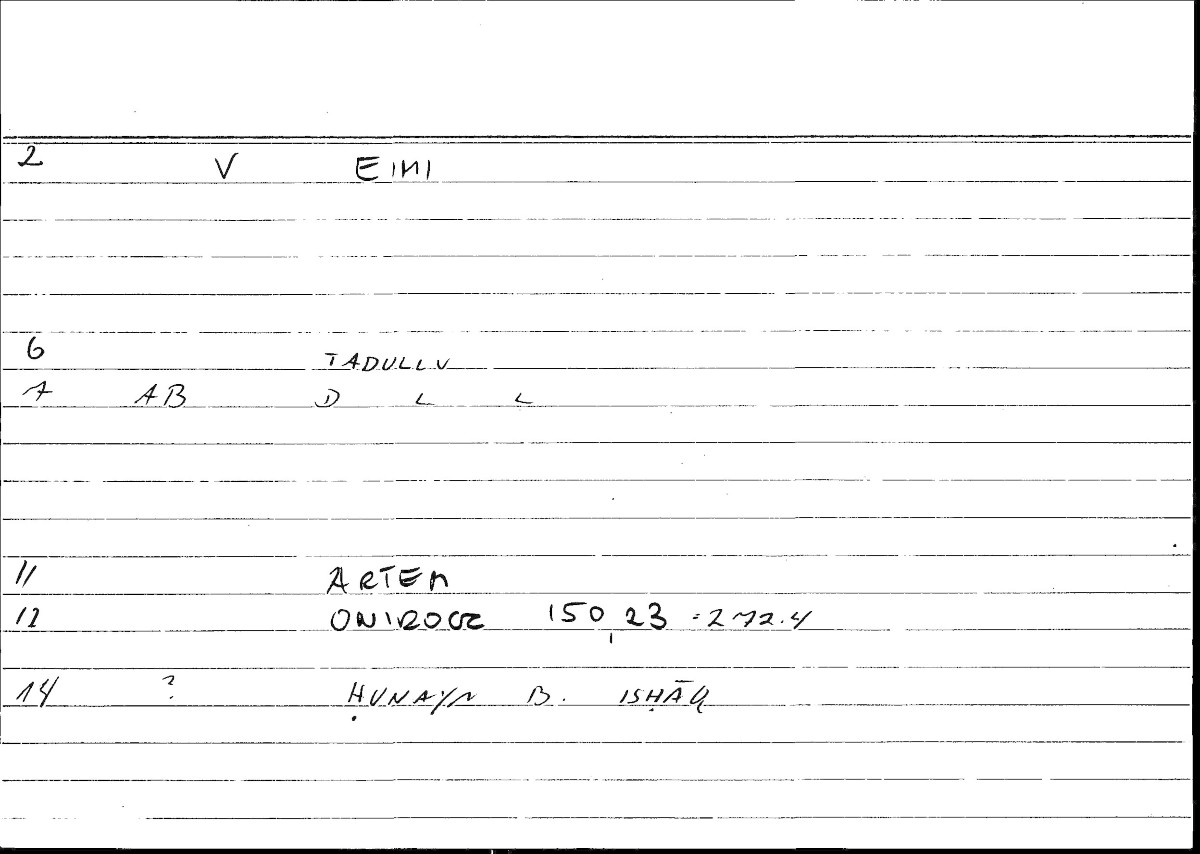 2 V EIMI
6 TADULLU
7 AB D L L
11 ARTEM
12 ONIROCR 150,23 = 272.4
14 ? ḤUNAYN B. ISḤĀQ